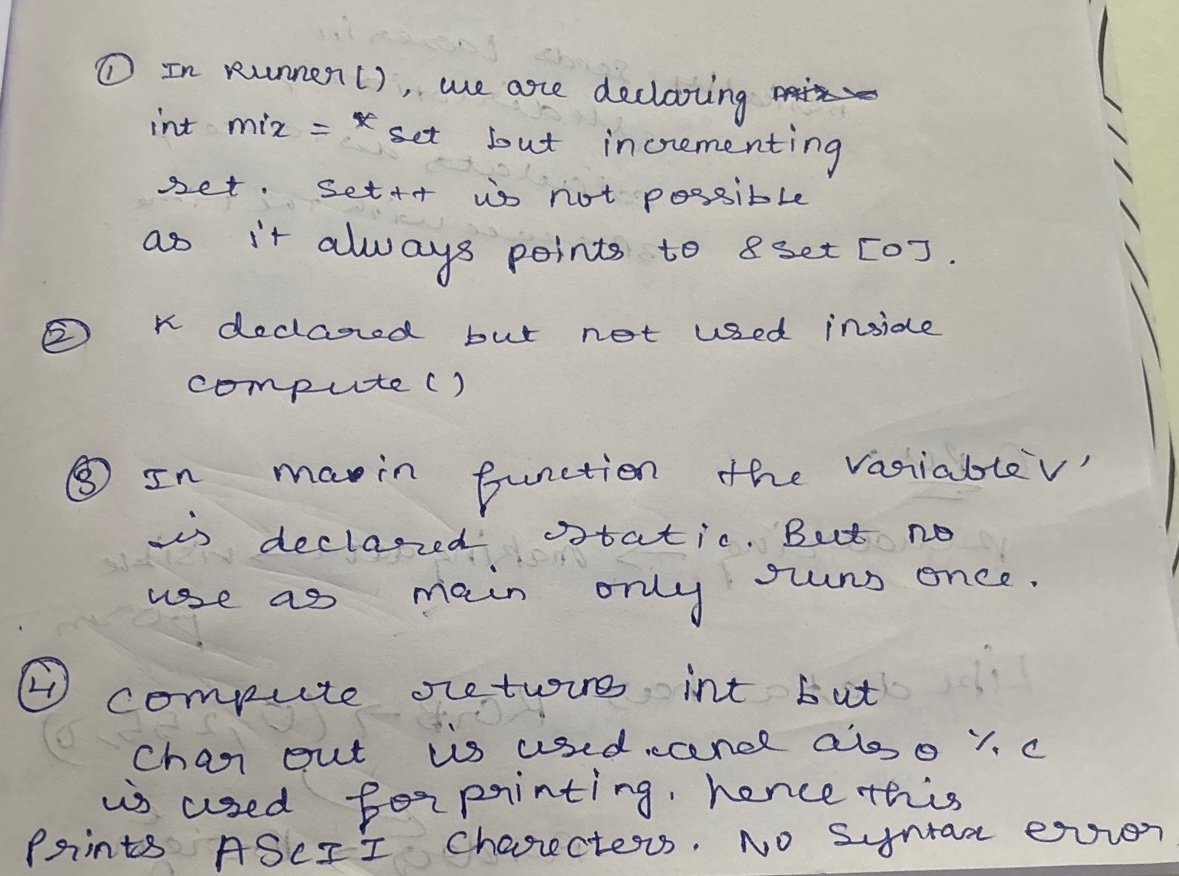 ① In Runner(), we are declaring
int mix = *set but incrementing
set. Set++ is not possible
as it always points to &set[0].
② K declared but not used inside
compute()
③ In main function the variable 'v'
is declared static. But no
use as main only runs once.
④ compute returns int but
char out is used. and also %c
is used for printing. hence this
prints ASCII charecters. No Syntax error